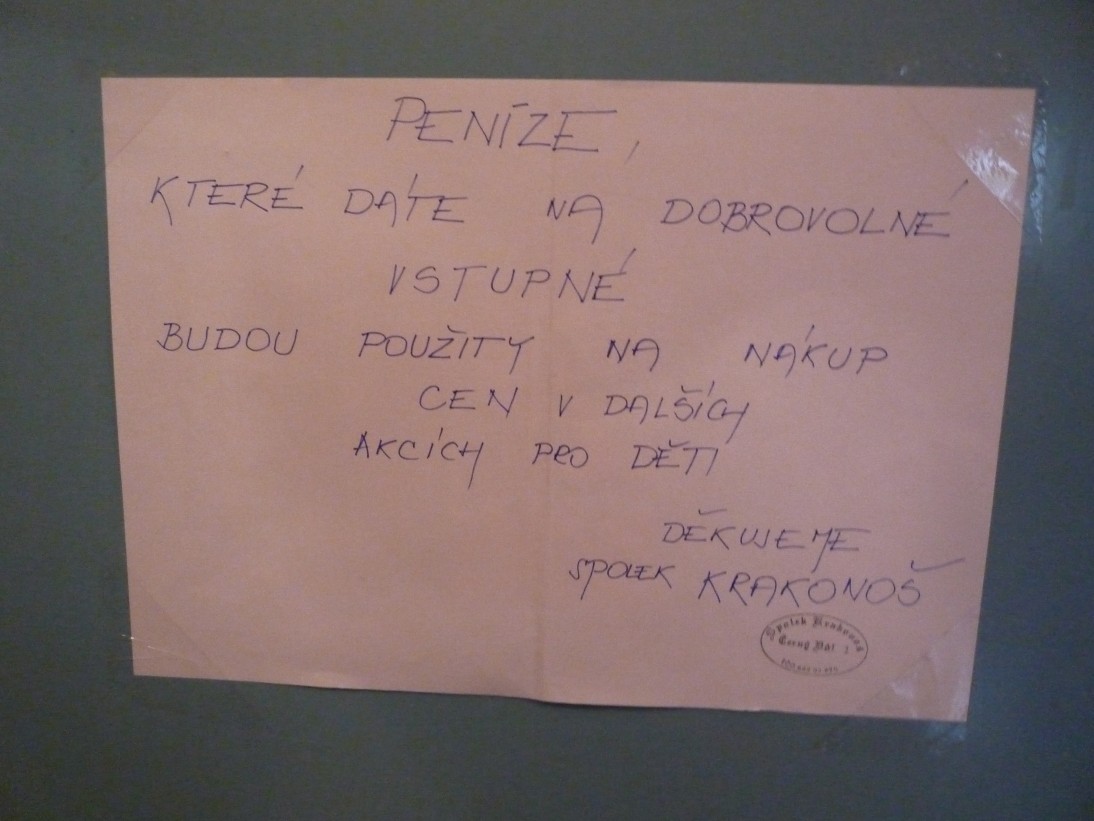 PENÍZE,
KTERÉ DÁTE NA DOBROVOLNÉ
VSTUPNÉ
BUDOU POUŽITY NA NÁKUP
CEN V DALŠÍCH
AKCÍCH PRO DĚTI
DĚKUJEME
SPOLEK KRAKONOŠ
Spolek Krakonoš
Černý Důl